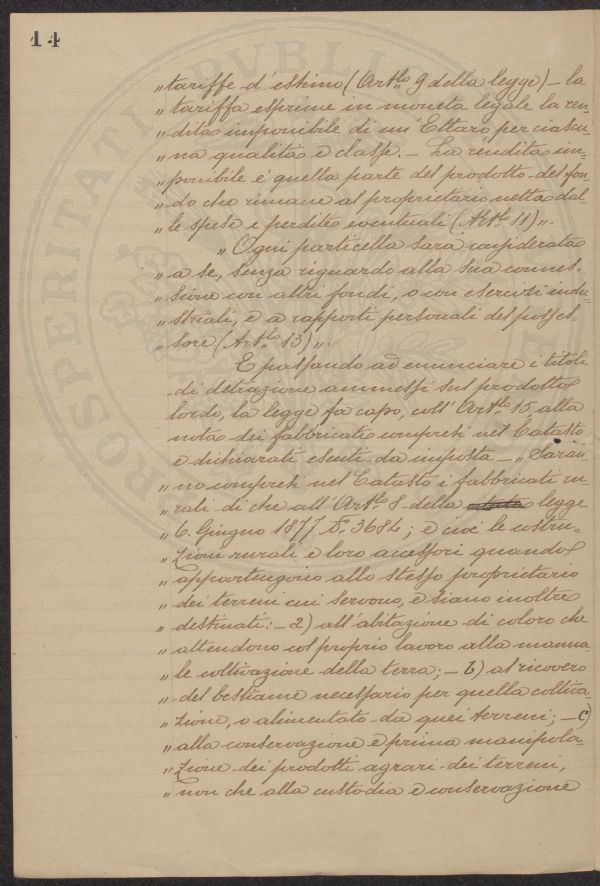 14
„ tariffe d'estimo (Art.lo 9 della legge) – la
„ tariffa esprime in moneta legale la ren-
„ dita imponibile di un'Ettaro per ciascu-
„ na qualità e classe. – La rendita im-
„ ponibile è quella parte del prodotto del fon-
„ do che rimane al proprietario netta dal-
„ le spese e perdite eventuali (Art.lo 11) „.
„ Ogni particella sarà considerata
„ a se, senza riguardo alla sua connes-
„ sione con altri fondi, o con esercizi indu-
„ striali, e a rapporti personali del posses-
„ sore (Art.lo 13) „.
E passando ad enunciare i titoli
di detrazione ammessi sul prodotto
lordo, la legge fa capo, coll'Art.lo 15 alla
nota dei fabbricati compresi nel Catasto
e dichiarati esenti da imposta – „ Saran
„ no compresi nel Catasto i fabbricati ru-
„ rali di che all'Art.lo 8 della legge
„ 6. Giugno 1877 N.o 3684; e cioè le costru-
„ zioni rurali e loro accessori quando
„ appartengono allo stesso proprietario
„ dei terreni cui servono, e siano inoltre
„ destinati: – a) all'abitazione di coloro che
„ attendono col proprio lavoro alla manua-
„ le coltivazione della terra; – b) al ricovero
„ del bestiame necessario per quella coltiva-
„ zione, o alimentato da quei terreni; – c)
„ alla conservazione e prima manipola-
„ zione dei prodotti agrari dei terreni,
„ non che alla custodia e conservazione
PROSPERITATI PVBLI